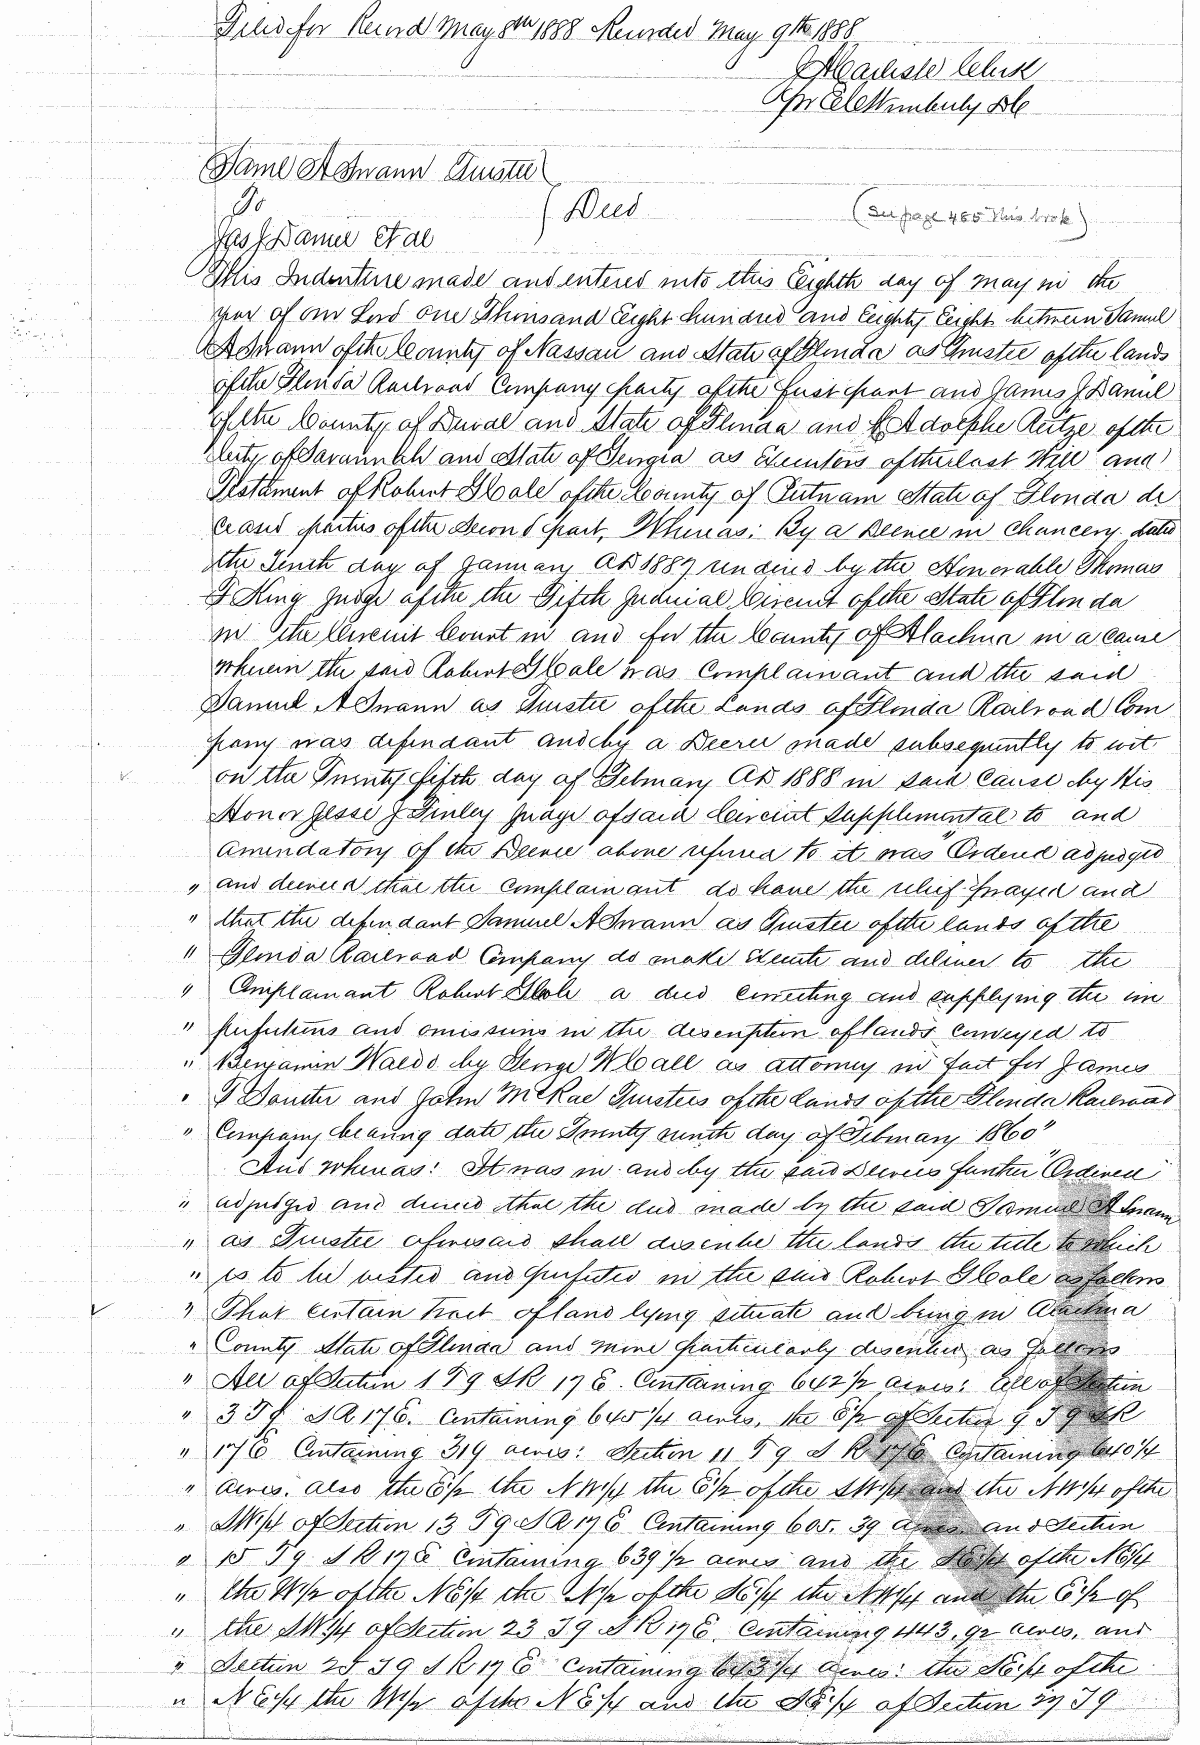 Filed for Record May 8th 1888 Recorded May 9th 1888
J A Carlisle Clerk
Per C C Wimberly D C
Saml A Swann Trustee
To
Deed
(See page 455 this book)
Jas J Daniel et al
This Indenture made and entered into this Eighth day of May in the
year of our Lord one Thousand Eight hundred and Eighty Eight between Samuel
A Swann of the County of Nassau and State of Florida as Trustee of the lands
of the Florida Railroad Company party of the first part and James J Daniel
of the County of Duval and State of Florida and Adolphe Reitze of the
City of Savannah and State of Georgia as Executors of the last Will and
Testament of Robert G Cole of the County of Putnam State of Florida de
ceased parties of the second part, Whereas: By a Decree in Chancery dated
the Tenth day of January AD 1887 rendered by the Honorable Thomas
F King Judge of the the Fifth Judicial Circuit of the State of Florida
in the Circuit Court in and for the County of Alachua in a cause
wherein the said Robert G Cole was Complainant and the said
Samuel A Swann as Trustee of the Lands of Florida Railroad Com
pany was defendant and by a Decree made subsequently to wit
on the Twenty fifth day of February AD 1888 in said cause by His
Honor Jesse J Finley Judge of said Circuit supplemental to and
amendatory of the Decree above referred to it was "Ordered adjudged
" and decreed that the Complainant do have the relief prayed and
" that the defendant Samuel A Swann as Trustee of the lands of the
" Florida Railroad Company do make Execute and deliver to the
" Complainant Robert G Cole a deed correcting and supplying the im
" perfections and omissions in the description of lands conveyed to
" Benjamin Waldo by George W Call as attorney in fact for James
" T Soutter and John McRae Trustees of the lands of the Florida Railroad
" Company bearing date the Twenty ninth day of February 1860"
And whereas: It was in and by the said Decrees further "Ordered
" adjudged and decreed that the deed made by the said Samuel A Swann
" as Trustee aforesaid shall describe the lands the title to which
" is to be vested and perfected in the said Robert G Cole as follows
" That certain tract of land lying situate and being in Alachua
" County State of Florida and more particularly described as follows
" All of Section 1 T 9 S R 17 E. Containing 642 1/2 acres: All of Section
" 3 T 9 S R 17 E. Containing 645 1/4 acres, the E 1/2 of Section 9 T 9 S R
" 17 E Containing 319 acres: Section 11 T 9 S R 17 E Containing 640 1/4
" acres. also the E 1/2 the NW 1/4 the E 1/2 of the SW 1/4 and the NW 1/4 of the
" SW 1/4 of Section 13 T 9 S R 17 E Containing 605.39 acres and Section
" 15 T 9 S R 17 E Containing 639 1/2 acres and the SE 1/4 of the NE 1/4
" the W 1/2 of the NE 1/4 the N 1/2 of the SE 1/4 the NW 1/4 and the E 1/2 of
" the SW 1/4 of Section 23 T 9 S R 17 E. Containing 443.92 acres, and
" Section 25 T 9 S R 17 E Containing 643 1/4 acres: the SE 1/4 of the
" NE 1/4 the W 1/2 of the NE 1/4 and the SE 1/4 of Section 27 T 9